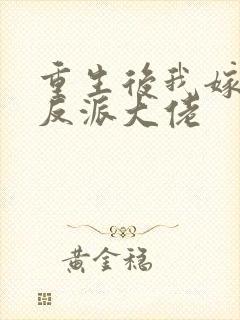 重生後我嫁
反派大佬
黃金稳